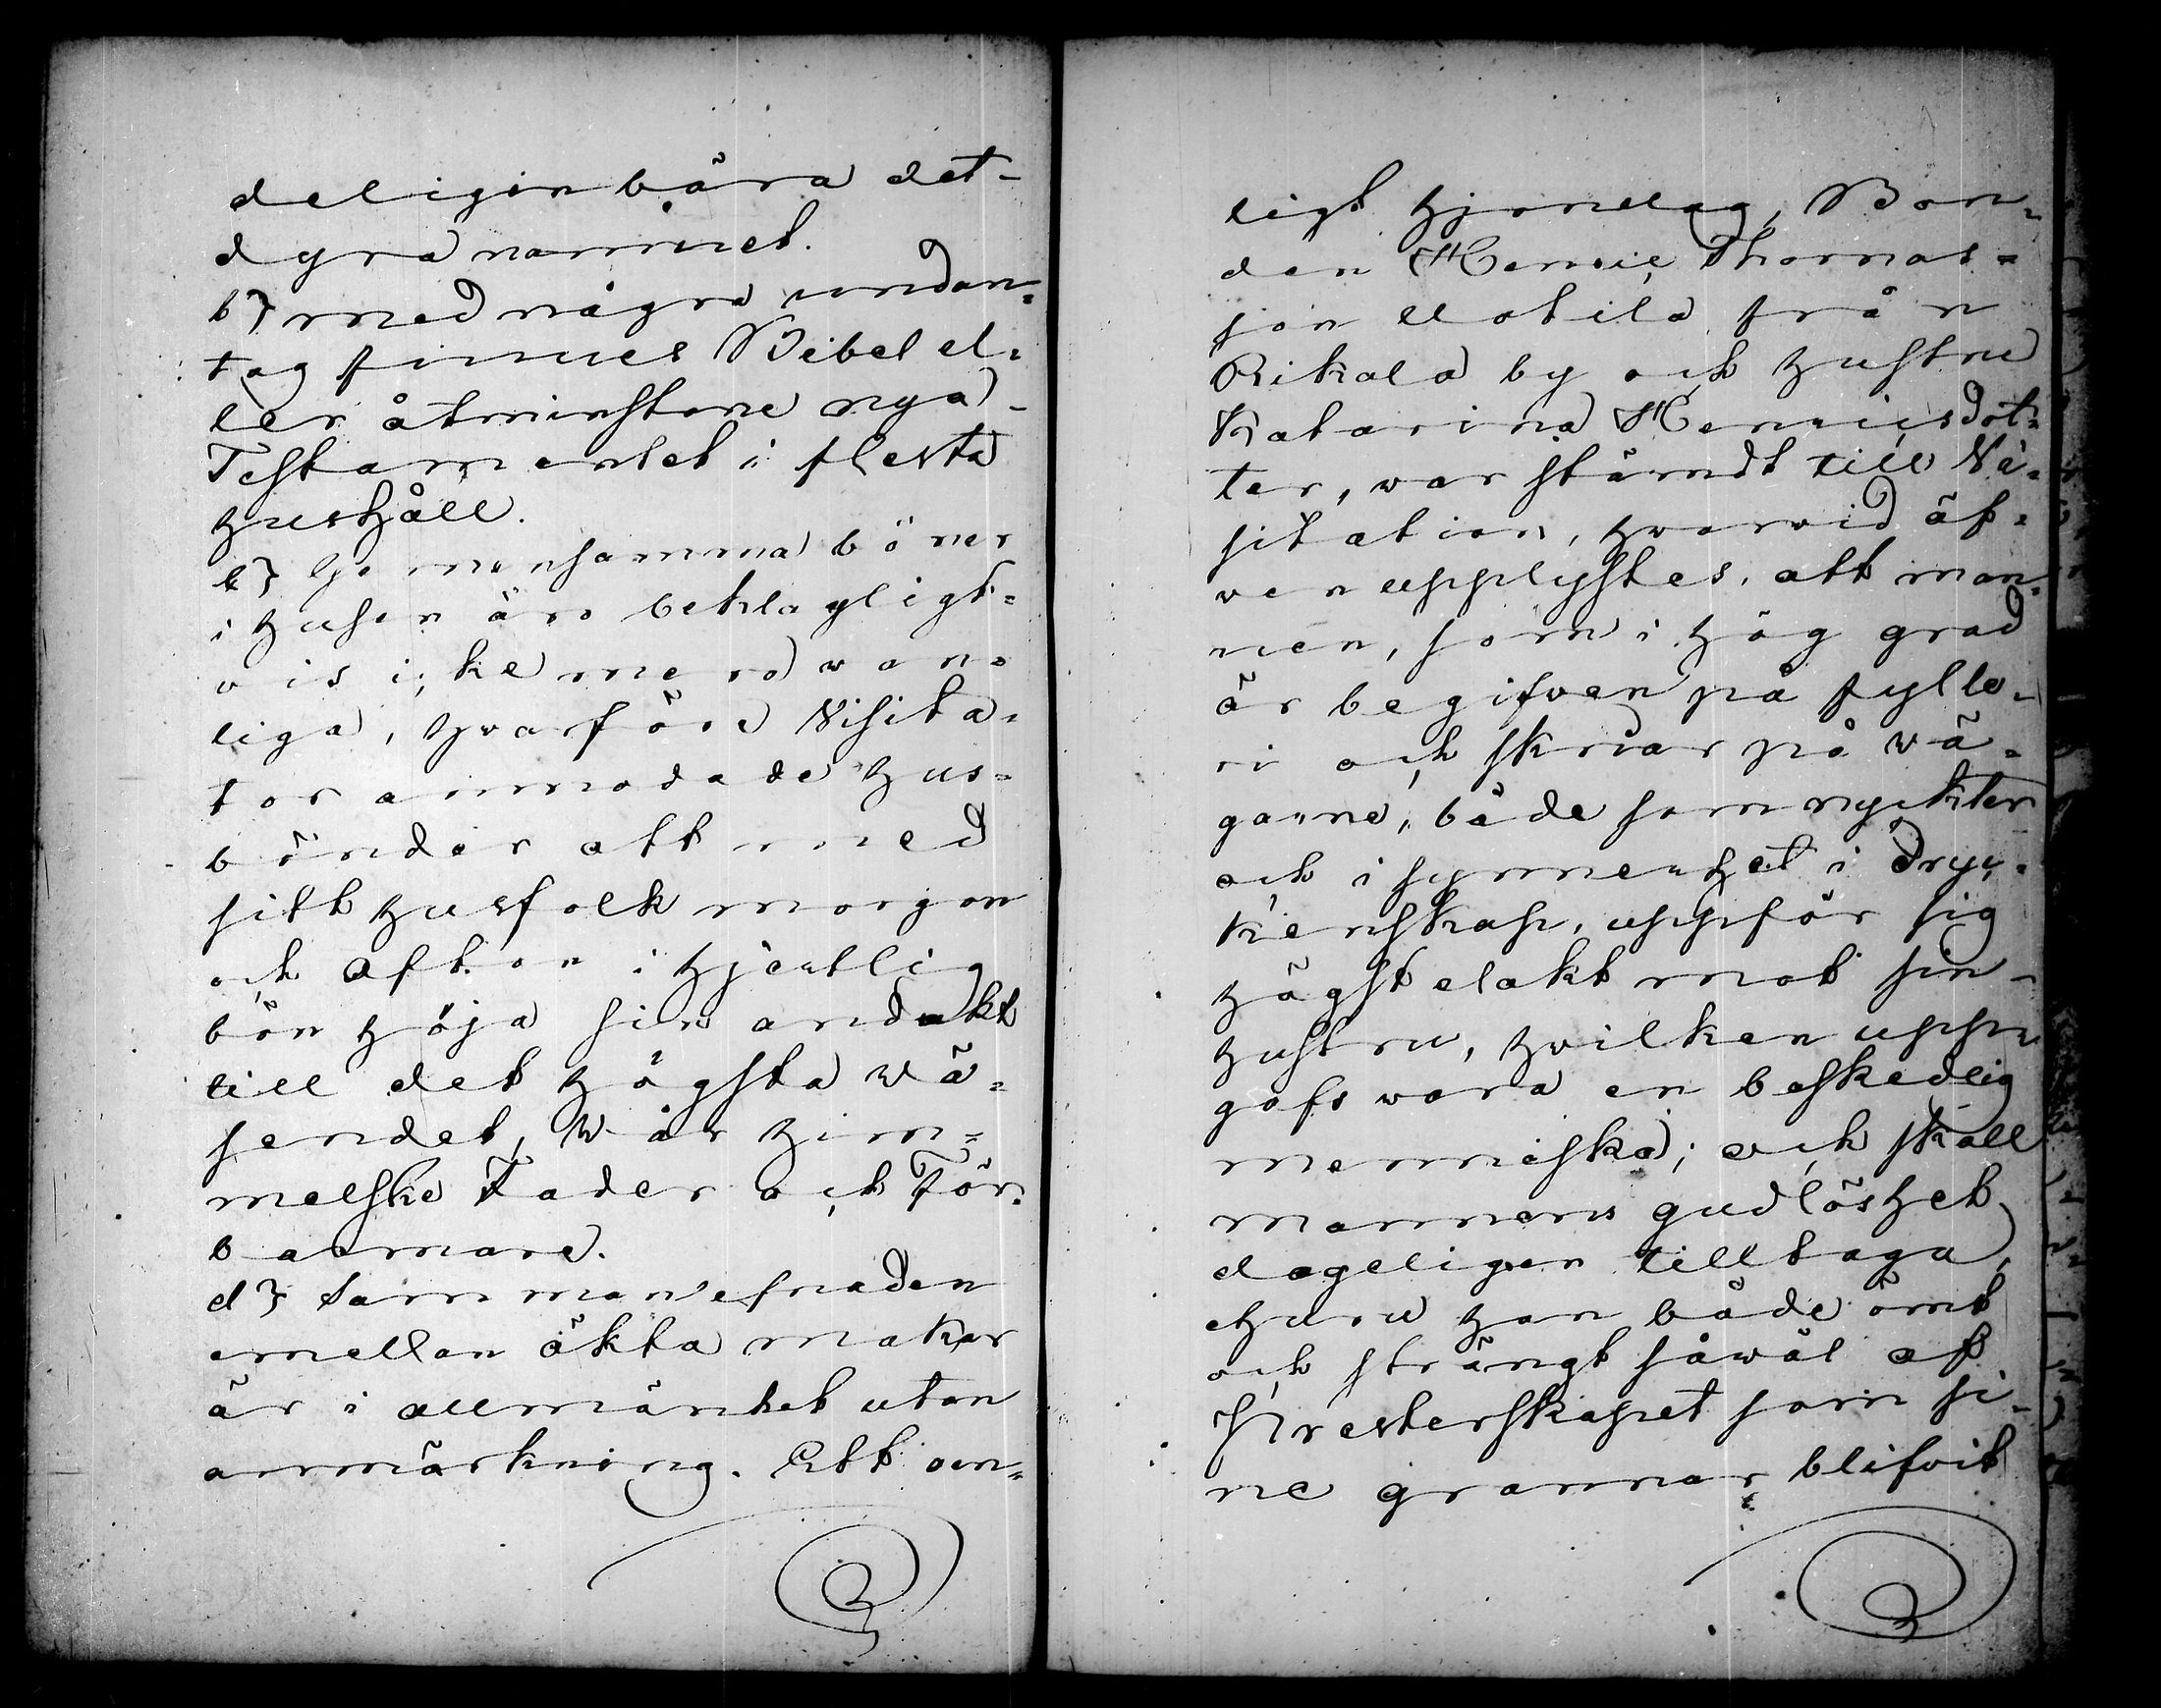 deligen bära det
dyra namnet.
b} med några undan-
tag finnes Bibel el-
ler åtminstone nya
Testamentet i flesta
hushåll.
c} Gemensamma böner
i husen äro beklagligt-
vis icke mera van-
liga, hvarföre Visita-
tor anmodade hus-
bönder att med
sitt husfolk morgon
och afton i hjertlig
bön höja sin andakt
till det högsta Wä-
sendet, Wår him-
melske Fader och För-
barmare.
d} Sammanlefnaden
emellan äkta makar
är i allmänhet utan
anmärkning. Ett oen-
ligt hjonelag, Bon-
den Thomas-
son från
Rikala by och hustru
Katarina
ter, war stämdt till Vi-
sitation, hvarvid äf-
ven upplystes, att man-
nen, som i hög grad
är begifven på fylle-
ri och skriar på wä-
garne, både som nykter
och i synnerhet i dryc-
kenskap, uppför sig
högst elakt mot sin
hustru, hvilken upp-
gafs vara en beskedlig
menniska; och skall
mannens gudlöshet
dageligen tilltaga,
ehuru han både ömt
och strängt såwäl af
Presterskapet som si-
ne grannar blifvit